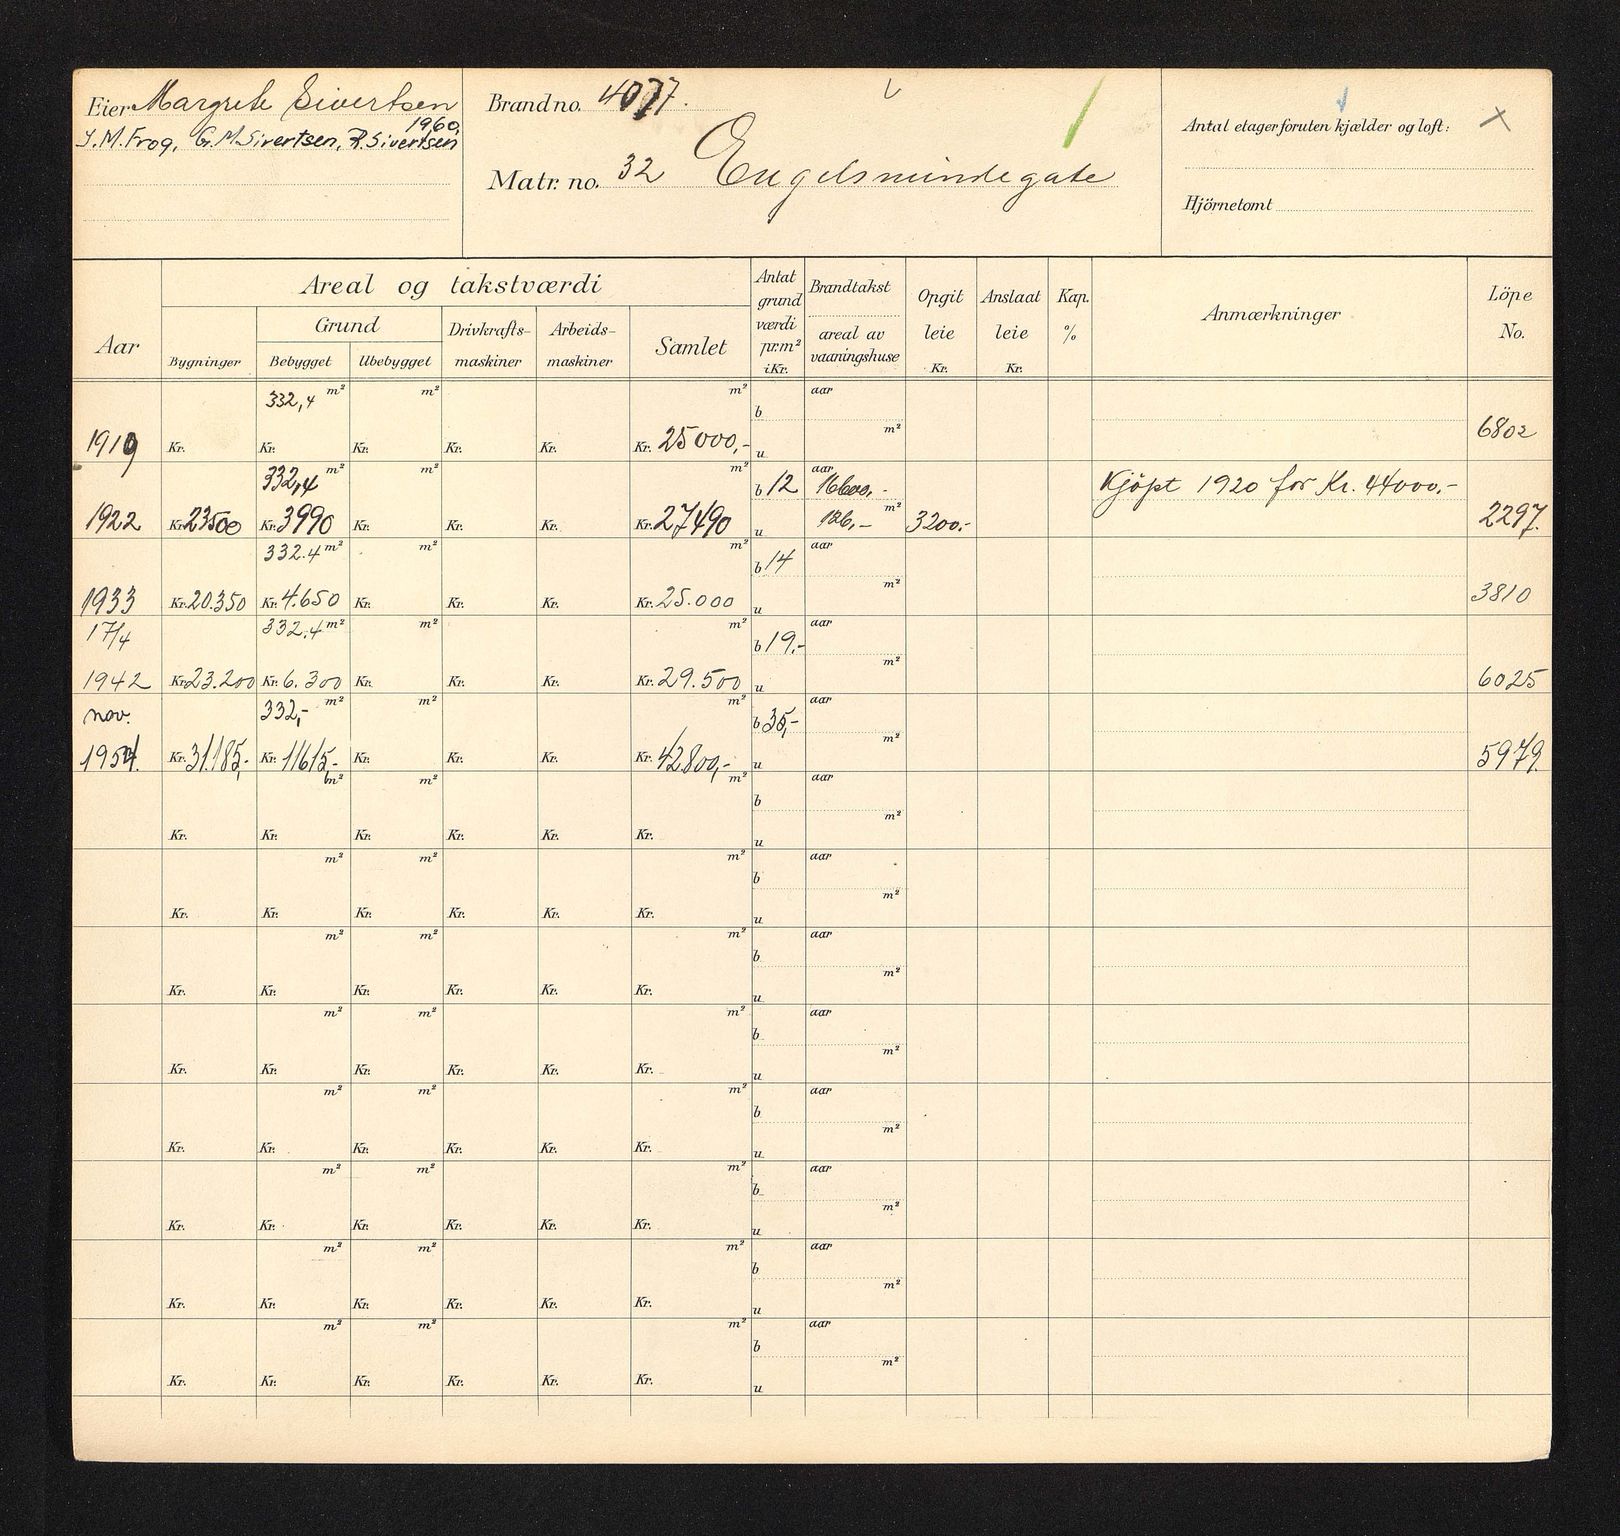 Eier Margrete Sivertsen
1960,
J.M.Frog, G.M.Sivertsen, R.Sivertsen
Brand no. 4077.
Matr. no. 32 Engelsmindegate
Antal etager foruten kjælder og loft: ×
Hjörnetomt
Aar
Areal og takstværdi
Bygninger
Grund
Bebygget
Ubebygget
Drivkrafts-
maskiner
Arbeids-
maskiner
Samlet
Antat
grund
værdi
pr.m²
i Kr.
Brandtakst
areal av
vaaningshuse
Opgit
leie
Kr.
Anslaat
leie
Kr.
Kap.
%
Anmærkninger
Löpe
No.
332,4 m² m² m² b aar m²
1919 Kr. Kr. Kr. Kr. Kr. Kr. 25000,- u 6802
332,4 m² m² m² b 12 aar 16600,- Kjöpt 1920 for Kr. 44000,-
1922 Kr. 23500 Kr. 3990 Kr. Kr. Kr. Kr. 27490 u 126,- m² 3200.- 2297.
332.4 m² m² m² b 14 aar m²
1933 Kr. 20.350 Kr. 4.650 Kr. Kr. Kr. Kr. 25.000 u 3810
17/4 332.4 m² m² m² b 19,- aar m²
1942 Kr. 23.200 Kr. 6.300 Kr. Kr. Kr. Kr. 29.500 u 6025
nov. 332,- m² m² m² b 35,- aar m²
1954. Kr. 31.185,- Kr. 11615,- Kr. Kr. Kr. Kr. 42800,- u 5979.
m² m² m² b aar m²
Kr. Kr. Kr. Kr. Kr. Kr. u
m² m² m² b aar m²
Kr. Kr. Kr. Kr. Kr. Kr. u
m² m² m² b aar m²
Kr. Kr. Kr. Kr. Kr. Kr. u
m² m² m² b aar m²
Kr. Kr. Kr. Kr. Kr. Kr. u
m² m² m² b aar m²
Kr. Kr. Kr. Kr. Kr. Kr. u
m² m² m² b aar m²
Kr. Kr. Kr. Kr. Kr. Kr. u
m² m² m² b aar m²
Kr. Kr. Kr. Kr. Kr. Kr. u
m² m² m² b aar m²
Kr. Kr. Kr. Kr. Kr. Kr. u